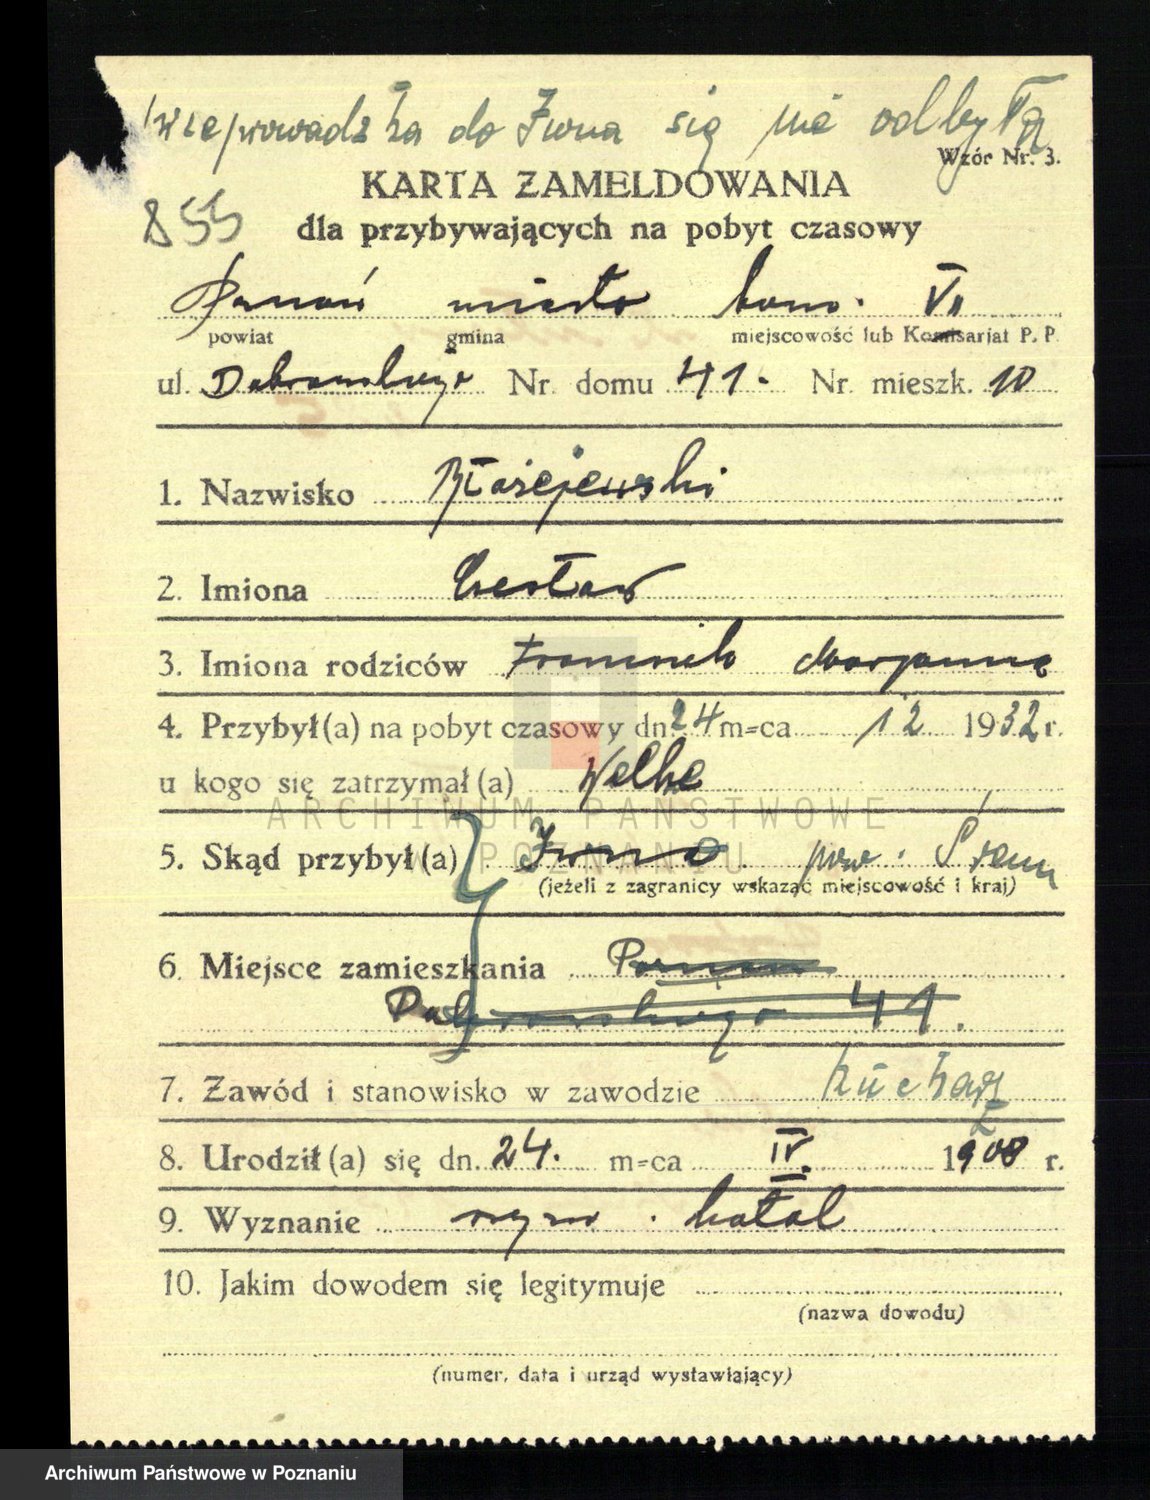 przeprowadzka do Iwna się nie odbyła
Wzór Nr. 3.
KARTA ZAMELDOWANIA
855
dla przybywających na pobyt czasowy
Poznań miasto kom. VII
powiat gmina miejscowość lub Komisarjat P. P.
ul. Dąbrowskiego Nr. domu 41. Nr. mieszk. 10
1. Nazwisko Błażejewski
2. Imiona Czesław
3. Imiona rodziców Franciszek Marjanna
4. Przybył(a) na pobyt czasowy dn. 24 m-ca 12 1932 r.
u kogo się zatrzymał(a) Welke
ARCHIWUM PAŃSTWOWE
W POZNANIU
5. Skąd przybył(a) Iwno pow. Śrem
(jeżeli z zagranicy wskazać miejscowość i kraj)
6. Miejsce zamieszkania Poznań
Dąbrowskiego 41.
7. Zawód i stanowisko w zawodzie kucharz
8. Urodził(a) się dn. 24. m-ca IV. 1908 r.
9. Wyznanie rzym. katol
10. Jakim dowodem się legitymuje
(nazwa dowodu)
(numer, data i urząd wystawiający)
Archiwum Państwowe w Poznaniu